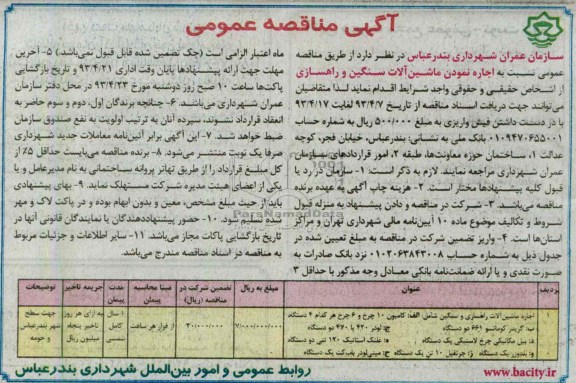 آگهی مناقصه عمومی
سازمان عمران شهرداری بندرعباس در نظر دارد از طریق مناقصه
عمومی نسبت به اجاره نمودن ماشین‌آلات سنگین و راهسازی
از اشخاص حقیقی و حقوقی واجد شرایط اقدام نماید لذا متقاضیان
می‌توانند جهت دریافت اسناد مناقصه از تاریخ ۹۳/۴/۷ لغایت ۹۳/۴/۱۷
با در دست داشتن فیش واریزی به مبلغ ۵۰۰/۰۰۰ ریال به شماره حساب
۰۱۰۹۴۷۰۶۵۵۰۰۱ بانک ملی به نشانی: بندرعباس، خیابان فجر، کوچه
عدالت ۱، ساختمان حوزه معاونت‌ها، طبقه ۲، امور قراردادهای سازمان
عمران شهرداری مراجعه نمایند. لازم به ذکر است: ۱- سازمان در رد یا
قبول کلیه پیشنهادها مختار است. ۲- هزینه چاپ آگهی به عهده برنده
مناقصه می‌باشد. ۳- شرکت در مناقصه و دادن پیشنهاد به منزله قبول
شروط و تکالیف موضوع ماده ۱۰ آیین‌نامه مالی شهرداری تهران و مراکز
استان‌ها است. ۴- واریز تضمین شرکت در مناقصه به مبلغ تعیین شده در
جدول ذیل به شماره حساب ۰۱۰۲۰۶۳۸۴۳۰۰۸ نزد بانک صادرات به
صورت نقدی و یا ارائه ضمانت‌نامه بانکی معادل وجه مذکور با حداقل ۳
ماه اعتبار الزامی است (چک تضمین شده قابل قبول نمی‌باشد) ۵- آخرین
مهلت جهت ارائه پیشنهادها پایان وقت اداری ۹۳/۴/۲۱ و تاریخ بازگشایی
پاکت‌ها ساعت ۱۰ صبح روز دوشنبه مورخ ۹۳/۴/۲۳ در محل دفتر سازمان
عمران شهرداری می‌باشد. ۶- چنانچه برندگان اول، دوم و سوم حاضر به
انعقاد قرارداد نشوند، سپرده آنان به ترتیب اولویت به نفع صندوق سازمان
ضبط خواهد شد. ۷- این آگهی برابر آئین‌نامه معاملات جدید شهرداری
صرفا یک نوبت منتشر می‌شود. ۸- برنده مناقصه می‌بایست حداقل ۵٪ از
کل مبلغ قرارداد را از طریق تهاتر پروانه ساختمانی به نام مدیرعامل و یا
یکی از اعضای هیئت مدیره شرکت مستهلک نماید. ۹- بهای پیشنهادی
باید از حیث مبلغ مشخص، معین و بدون ابهام بوده و در پاکت لاک و مهر
شده تسلیم شود. ۱۰- حضور پیشنهاددهندگان یا نمایندگان قانونی آنها در
تاریخ بازگشایی پاکات مجاز می‌باشد. ۱۱- سایر اطلاعات و جزئیات مربوط
به مناقصه در اسناد مناقصه مندرج می‌باشد.
ردیف عنوان مبلغ به ریال تضمین شرکت در مناقصه (ریال) مبنا محاسبه پیمان مدت پیمان جریمه تاخیر توضیحات
۱ اجاره ماشین‌آلات راهسازی و سنگین شامل: الف: کامیون ۱۰ چرخ و ۶ چرخ هر کدام ۴ دستگاه
ب: گریدر کوماتسو ۶۶۱ دو دستگاه ج: لودر ۴۲۰ یا ۴۷۰ دو دستگاه
د: بیل مکانیکی چرخ لاستیکی یک دستگاه ه: غلتک استاتیک ۱۲۰ تنی دو دستگاه
و: بلدوزر یک دستگاه ز: جرثقیل ۱۰ تن یک دستگاه ح: مینی‌لودر بابکت یک دستگاه
۷/۰۰۰/۰۰۰/۰۰۰ ۳۰۰/۰۰۰/۰۰۰ از قرار هر ساعت ۱ سال کامل شمسی به ازای هر روز تاخیر پنجاه میلیون ریال جهت سطح شهر بندرعباس و حومه
روابط عمومی و امور بین‌الملل شهرداری بندرعباس
www.bacity.ir
ParsNamadData